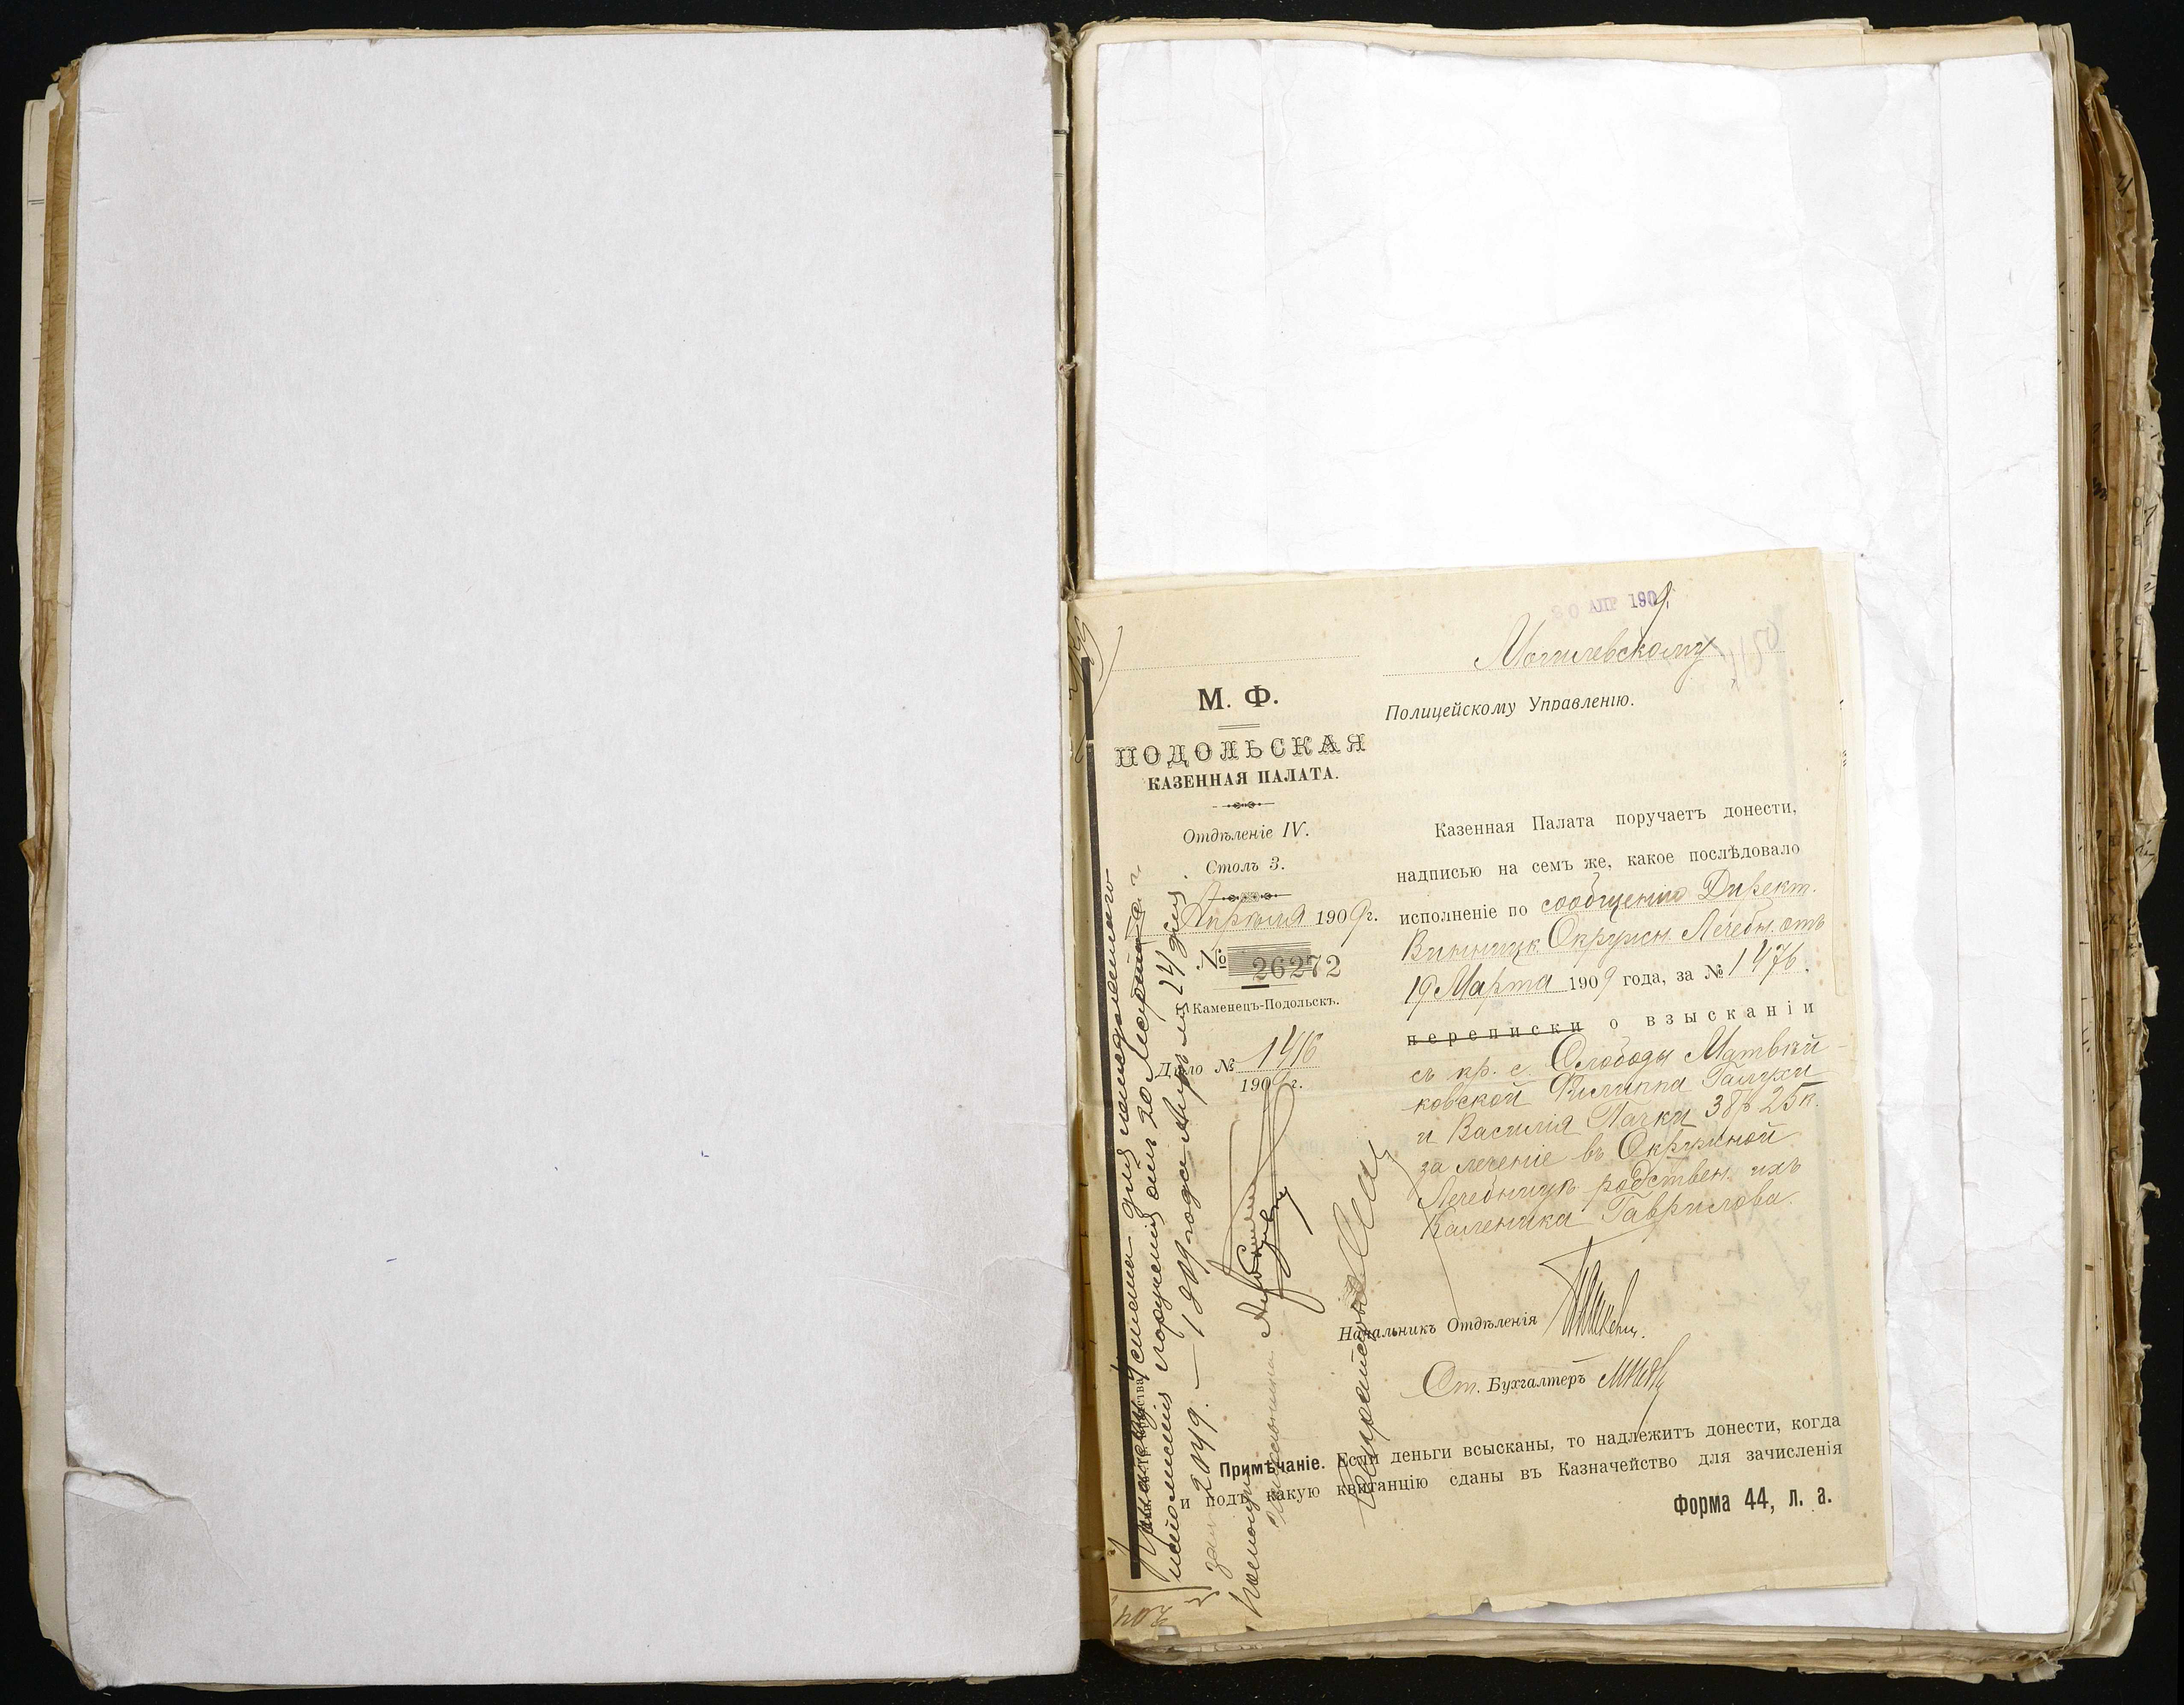 30 АПР 1909
Могилевскому
Полицейскому Управленію.
М. Ф.
ПОДОЛЬСКАЯ
КАЗЕННАЯ ПАЛАТА.
Отдѣленіе IV.
Столъ 3.
Апрѣля 1909 г.
№ 26272
г. Каменецъ-Подольскъ.
Дѣло № 1416
1909 г.
Казенная Палата поручаетъ донести,
надписью на семъ же, какое послѣдовало
исполненіе по сообщенію Директ.
Винницк. Окружн. Лечебн. отъ
19 Марта 1909 года, за № 1476.
переписки о взысканіи
съ кр. с. Слободы Матвѣй-
ковской Филиппа Галухи
и Василія Пачки 38 р 25 к.
за леченіе въ Окружной
Лечебницѣ родствен. ихъ
Каленика Гаврилова.
Начальникъ Отдѣленія
От. Бухгалтеръ
Примѣчаніе. Если деньги взысканы, то надлежитъ донести, когда
и подъ какую квитанцію сданы въ Казначейство для зачисленія
Форма 44, л. а.
Уряднику для немедленного
исполненія порученія отъ 20 г.
за № 2049. — 1909 года Апрѣля 24 дня.